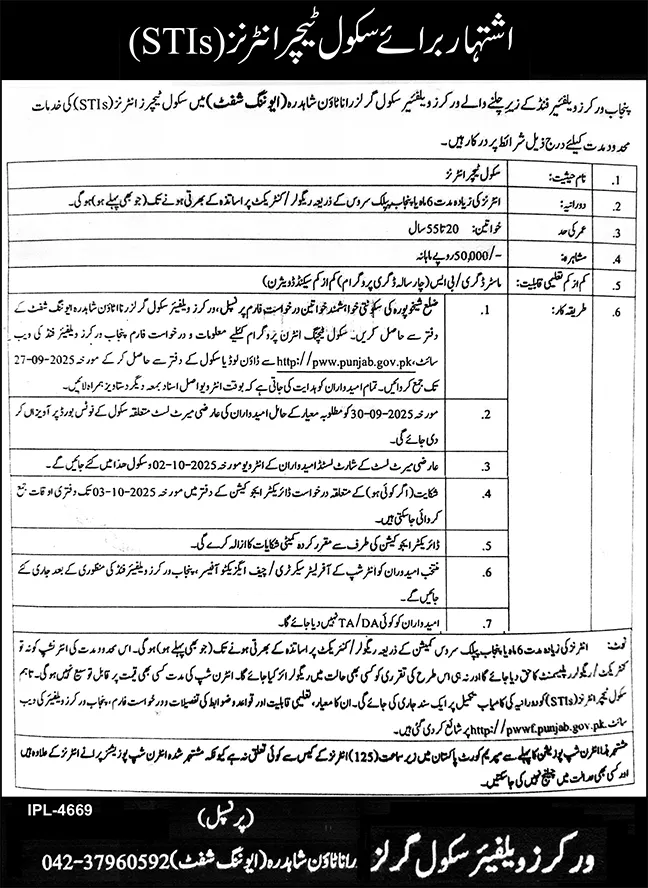 اشتہار برائے سکول ٹیچر انٹرنز (STIs)
پنجاب ورکرز ویلفیئر فنڈ کے زیر چلنے والے ورکرز ویلفیئر سکول گرلز رانا ٹاؤن شاہدرہ (ایوننگ شفٹ) میں سکول ٹیچرز انٹرنز (STIs) کی خدمات
محدود مدت کیلئے درج ذیل شرائط پر درکار ہیں۔
1. نام حیثیت: سکول ٹیچر انٹرنز
2. دورانیہ: انٹرنز کی زیادہ مدت 6 ماہ یا پنجاب پبلک سروس کے ذریعہ ریگولر/کنٹریکٹ پر اساتذہ کے بھرتی ہونے تک (جو بھی پہلے ہو) ہوگی۔
3. عمر کی حد خواتین: 20 تا 55 سال
4. مشاہرہ: 50,000/- روپے ماہانہ
5. کم از کم تعلیمی قابلیت: ماسٹر ڈگری/بی ایس (چار سالہ ڈگری پروگرام) کم از کم سیکنڈ ڈویژن)
6. طریقہ کار: 1. ضلع شیخوپورہ کی سکونتی خواہشمند خواتین درخواست فارم پرنسپل، ورکرز ویلفیئر سکول گرلز رانا ٹاؤن شاہدرہ ایوننگ شفٹ کے
دفتر سے حاصل کریں۔ سکول ٹیچنگ انٹرن پروگرام کیلئے معلومات و درخواست فارم پنجاب ورکرز ویلفیئر فنڈ کی ویب
سائٹ، http://pww.punjab.gov.pk سے ڈاؤن لوڈ یا سکول کے دفتر سے حاصل کر کے مورخہ 27-09-2025
تک جمع کروائیں۔ تمام امیدواران کو ہدایت کی جاتی ہے کہ بوقت انٹرویو اصل اسناد بمعہ دیگر دستاویز ہمراہ لائیں۔
2. مورخہ 30-09-2025 کو مطلوبہ معیار کے حامل امیدواران کی عارضی میرٹ لسٹ متعلقہ سکول کے نوٹس بورڈ پر آویزاں کر
دی جائے گی۔
3. عارضی میرٹ لسٹ کے شارٹ لسٹڈ امیدواران کے انٹرویو مورخہ 02-10-2025 کو سکول ھذا میں کئے جائیں گے۔
4. شکایت (اگر کوئی ہو) کے متعلقہ درخواست ڈائریکٹر ایجوکیشن کے دفتر میں مورخہ 03-10-2025 تک دفتری اوقات جمع
کروائی جا سکتی ہیں۔
5. ڈائریکٹر ایجوکیشن کی طرف سے مقرر کردہ کمیٹی شکایات کا ازالہ کرے گی۔
6. منتخب امیدواران کو انٹرشپ کے آفر لیٹر سیکرٹری/چیف ایگزیکٹو آفیسر، پنجاب ورکرز ویلفیئر فنڈ کی منظوری کے بعد جاری کئے
جائیں گے۔
7. امیدواران کو کوئی TA/DA نہیں دیا جائے گا۔
نوٹ: انٹرنز کی زیادہ مدت 6 ماہ یا پنجاب پبلک سروس کمیشن کے ذریعہ ریگولر/کنٹریکٹ پر اساتذہ کے بھرتی ہونے تک (جو بھی پہلے ہو) ہوگی۔ اس محدود مدت کی انٹرنشپ کو نہ تو
کنٹریکٹ/ریگولر ریپلیسمنٹ کا حق دیا جائے گا اور نہ ہی اس طرح کی تقرری کو کسی بھی حالت میں ریگولرائز کیا جائے گا۔ انٹرن شپ کی مدت کسی بھی قیمت پر قابل توسیع نہیں ہوگی۔ تاہم
سکول ٹیچر انٹرنز (STIs) کو دورانیہ کی کامیاب تکمیل پر ایک سند جاری کی جائے گی۔ ان کا معیار، تعلیمی قابلیت اور قواعد و ضوابط کی تفصیلات و درخواست فارم، پنجاب ورکرز ویلفیئر کی ویب
سائٹ http://pwwf.punjab.gov.pk پر شائع کر دی گئی ہیں۔
مشتہر ہذا انٹرن شپ پوزیشن کا پہلے سے سپریم کورٹ پاکستان میں زیر سماعت (125) انٹرنز کے کیس سے کوئی تعلق نہ ہے کیونکہ مشتہر شدہ انٹرن شپ پوزیشنز پرانے انٹرنز کے علاوہ ہیں
اور کسی بھی عدالت میں چیلنج نہیں کی جا سکتیں۔
IPL-4669
(پرنسپل)
ورکرز ویلفیئر سکول گرلز رانا ٹاؤن شاہدرہ (ایوننگ شفٹ) 042-37960592